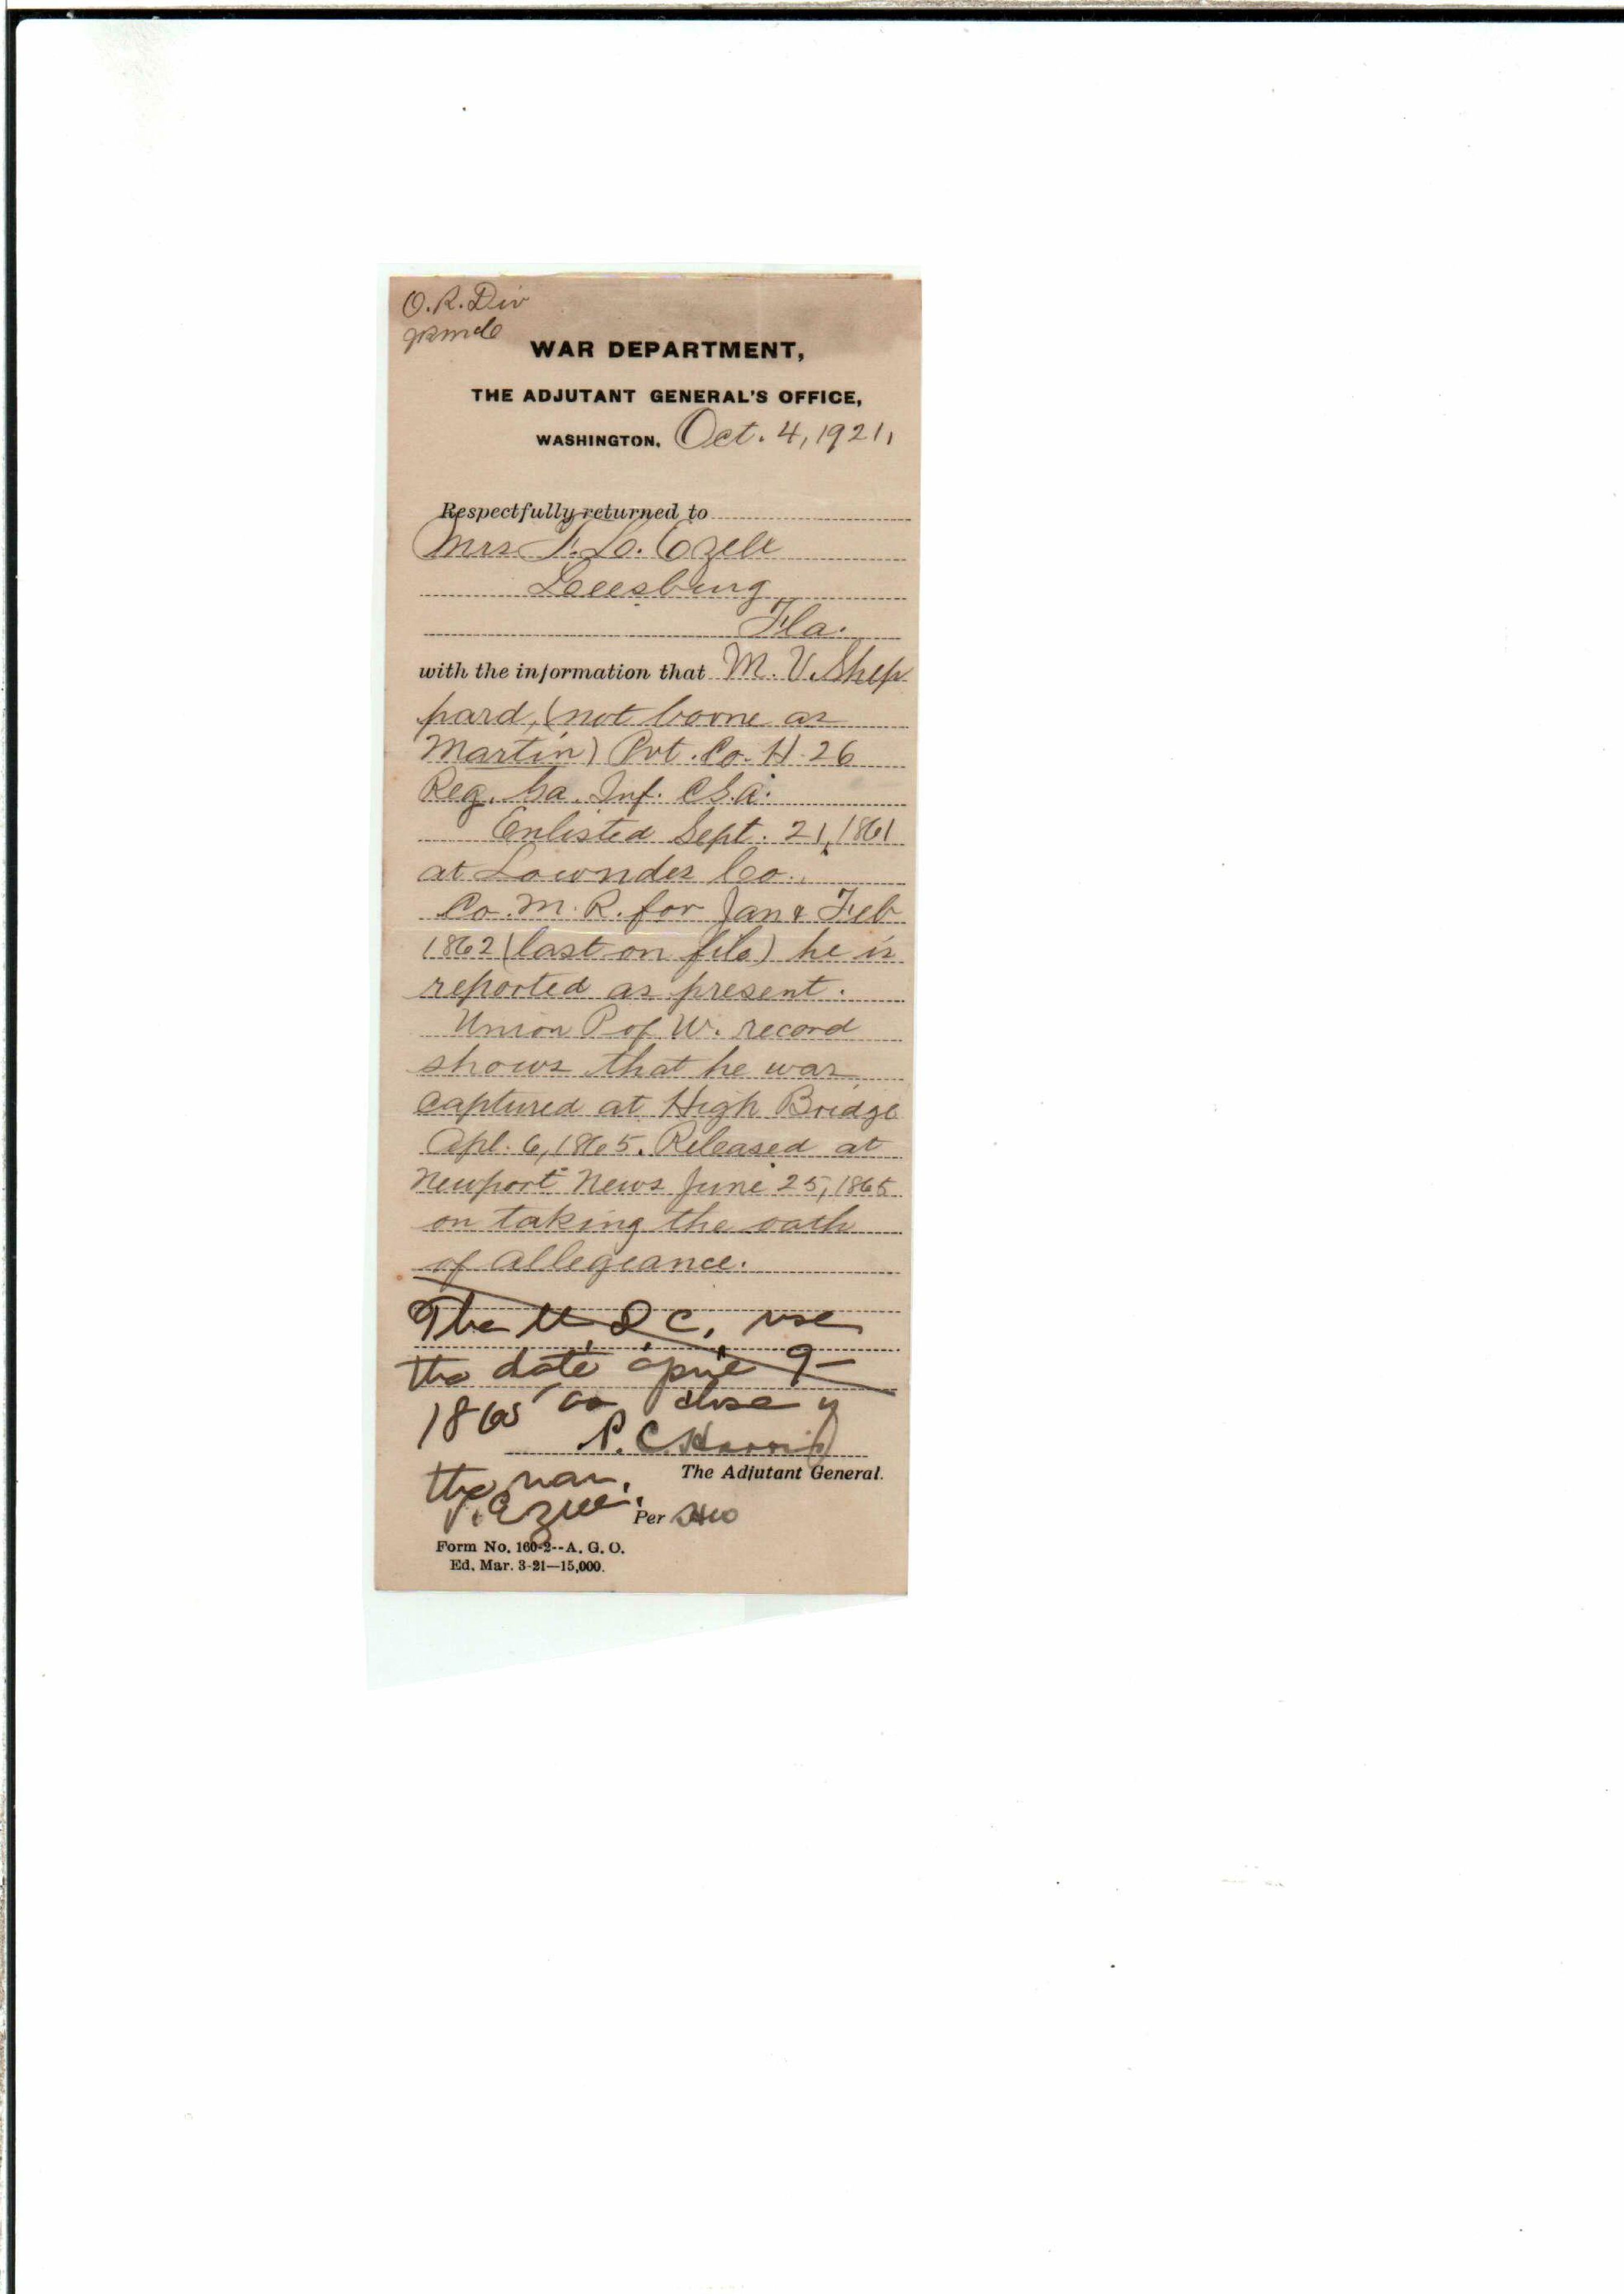 O.R. Div
WAR DEPARTMENT,
THE ADJUTANT GENERAL'S OFFICE,
WASHINGTON, Oct. 4, 1921,
Respectfully returned to
Mrs F. L. Ezell
Leesburg
Fla.
with the information that M. V. Shep
pard, (not borne as
Martin) Pvt. Co. H. 26
Reg. Ga. Inf. C.S.A.
Enlisted Sept. 21, 1861
at Lowndes Co.
Co. M. R. for Jan & Feb
1862 (last on file) he is
reported as present.
Union P of W. record
shows that he was
captured at High Bridge
Apl. 6, 1865. Released at
Newport News June 25, 1865
on taking the oath
of allegeance.
The U.D.C. use
the date april 9-
1865 as close of
P. C. Harris
the war. The Adjutant General.
Ezell. Per
Form No. 160-2--A. G. O.
Ed. Mar. 3-21—15,000.